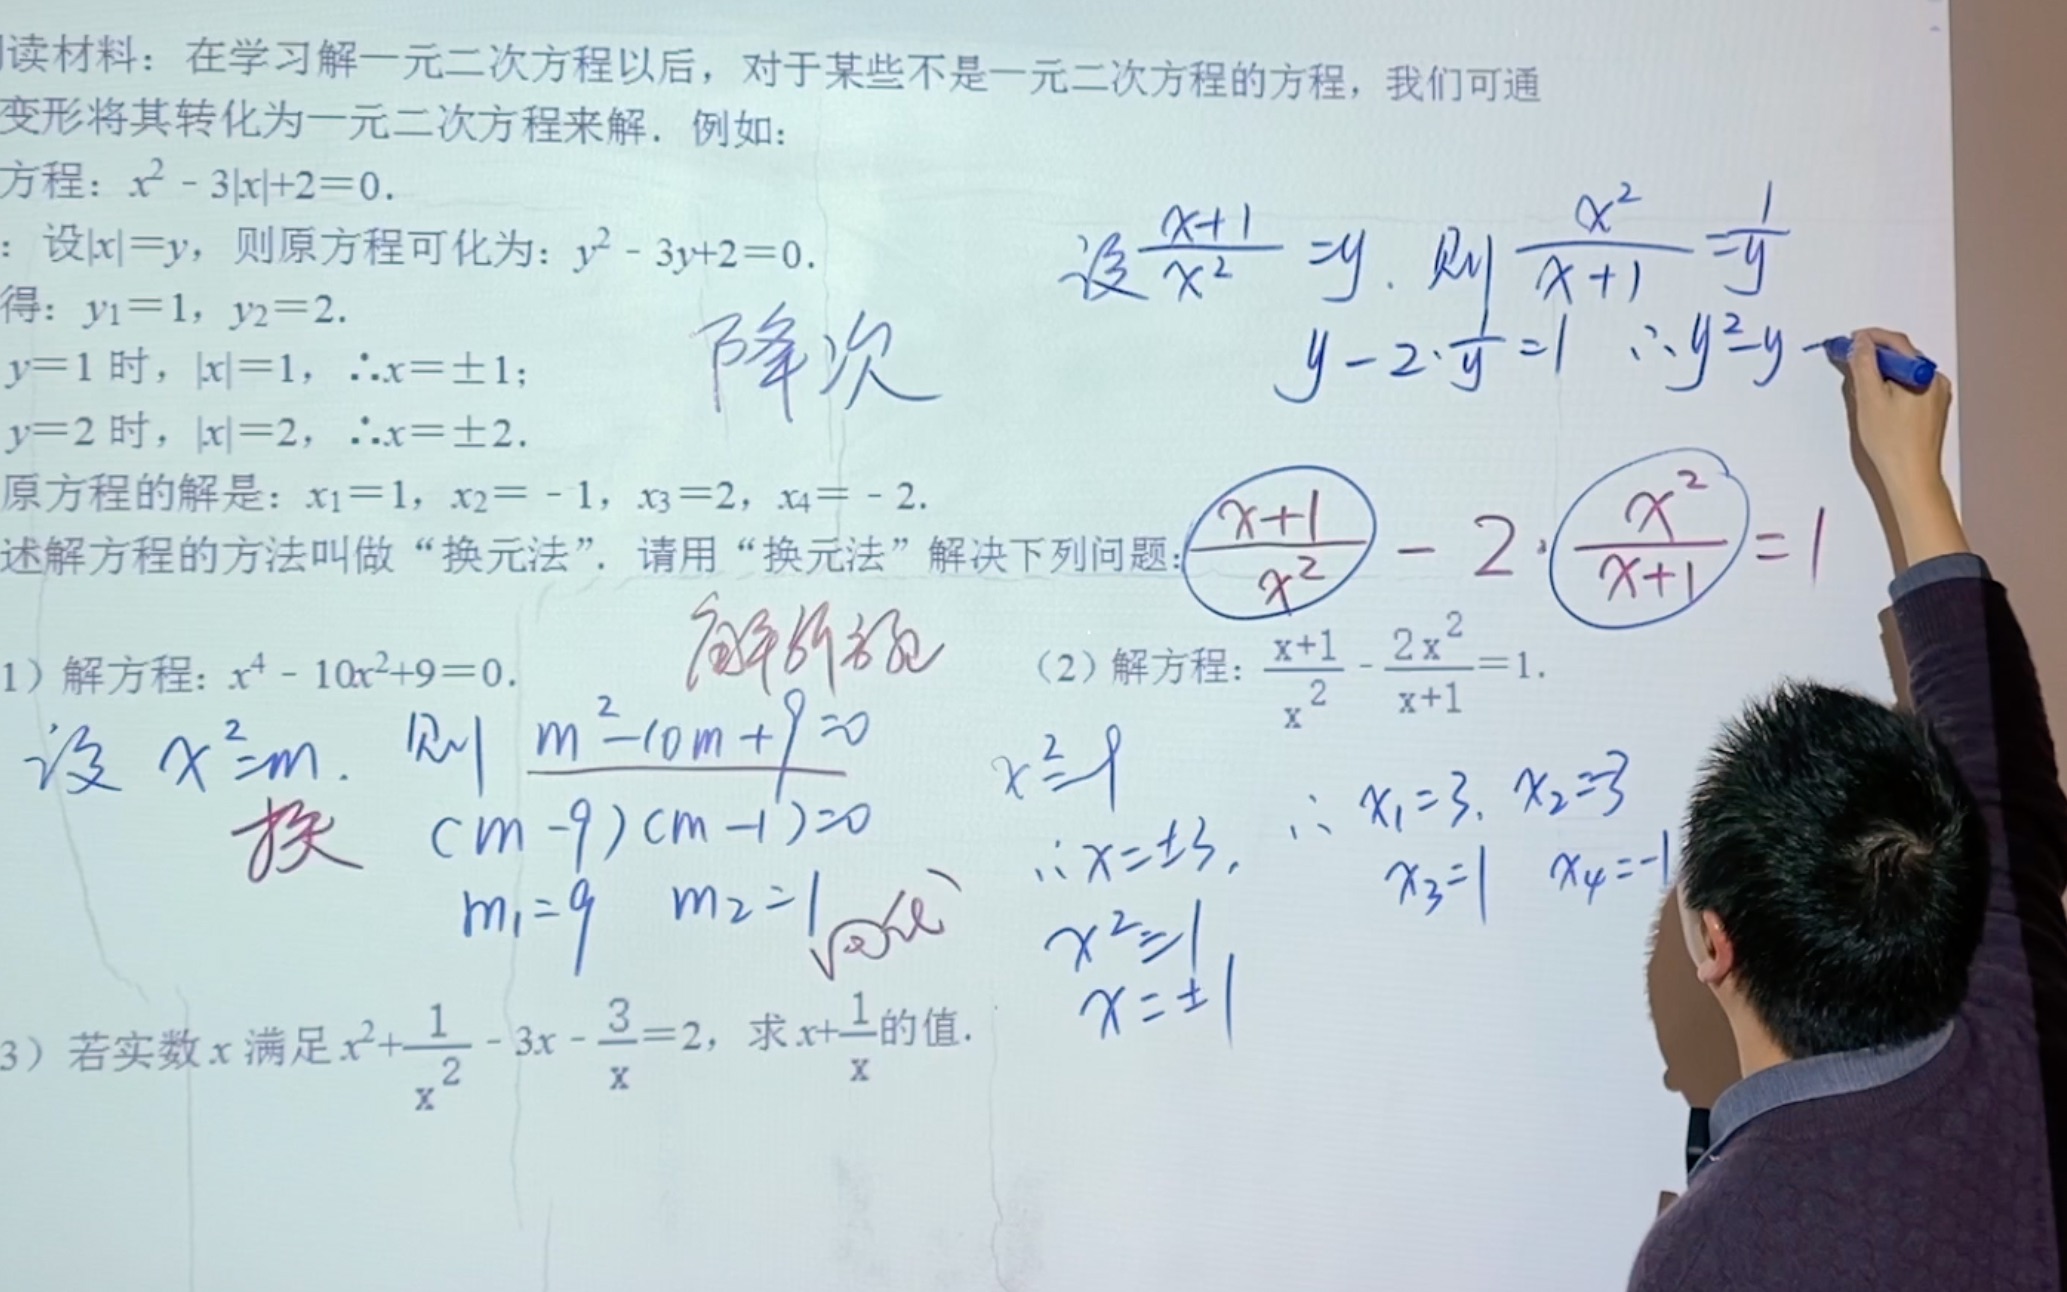 读材料：在学习解一元二次方程以后，对于某些不是一元二次方程的方程，我们可通
变形将其转化为一元二次方程来解．例如：
方程：x² - 3|x|+2=0．
：设|x|=y，则原方程可化为：y² - 3y+2=0．
得：y₁=1，y₂=2．
y=1 时，|x|=1，∴x=±1；
y=2 时，|x|=2，∴x=±2．
原方程的解是：x₁=1，x₂= - 1，x₃=2，x₄= - 2．
述解方程的方法叫做“换元法”．请用“换元法”解决下列问题：
降次
设 (x+1)/x² =y. 则 x²/(x+1) = 1/y
y-2·1/y=1 ∴y²-y-
(x+1)/x² - 2· x²/(x+1) =1
1）解方程：x⁴ - 10x²+9=0．
（2）解方程：(x+1)/x² - 2x²/(x+1)=1．
设 x²=m. 则 m²-10m+9=0
换
(m-9)(m-1)=0
m₁=9 m₂=1
x²=9
∴x=±3,
x²=1
x=±1
∴ x₁=3. x₂=-3
x₃=1 x₄=-1
3）若实数 x 满足 x²+1/x² - 3x - 3/x=2，求 x+1/x的值．